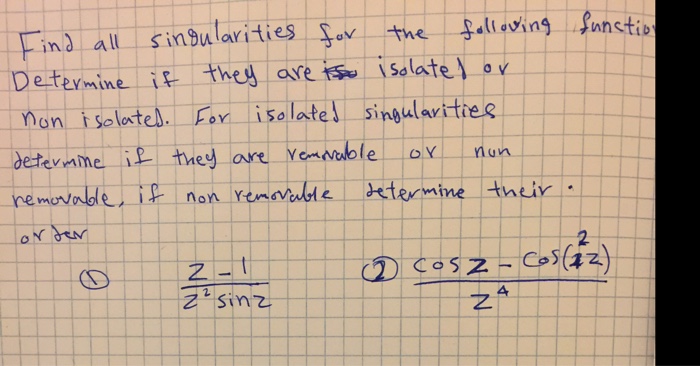 Find all singularities for the following functio
Determine if they are isolated or
non isolated. For isolated singularities
determine if they are removable or non
removable, if non removable determine their.
order
① z-1 / z² sin z ② cos z - cos(2z) / z⁴